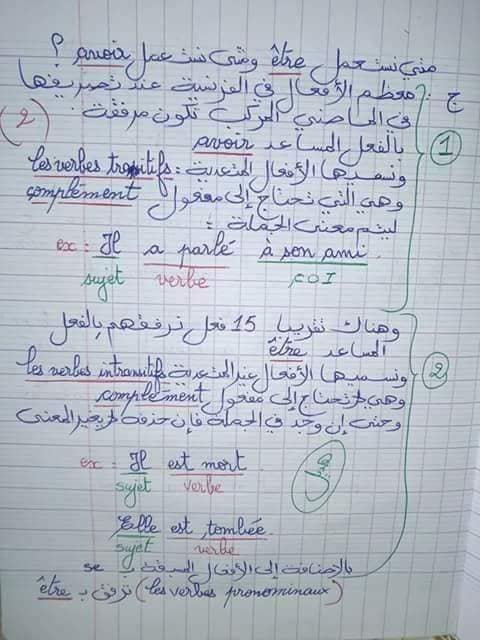 متى نستعمل être ومتى نستعمل avoir ؟
ج : معظم الأفعال في الفرنسية عند تصريفها
في الماضي المركب تكون مرفقة
بالفعل المساعد avoir
(2)
1
ونسميها الأفعال المتعدية : les verbes transitifs
وهي التي تحتاج إلى مفعول complèment
ليتم معنى الجملة :
ex : Il a parlé à son ami.
sujet verbe COI
وهناك تقريبا 15 فعل نرفقهم بالفعل
المساعد être
ونسميها الأفعال غير المتعدية les verbes intransitifs
2
وهي لا تحتاج إلى مفعول complèment
وحتى إن وجد في الجملة فإن حذفه لا يغير المعنى
ex : Il est mort.
sujet verbe
Elle est tombée.
sujet verbe
بالإضافة إلى الأفعال المسبقة بـ se
(les verbes pronominaux) ترفق بـ être